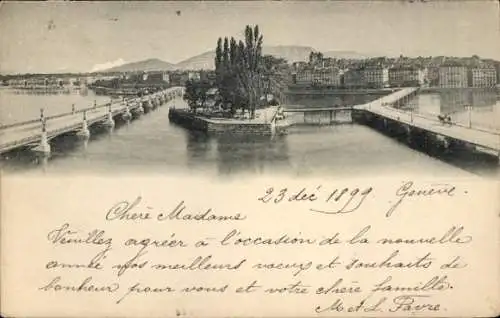 23 déc 1899 Genève.
Chère Madame
Veuillez agréer à l'occasion de la nouvelle
année mes meilleurs voeux et souhaits de
bonheur pour vous et votre chère famille.
M et L. Favre.